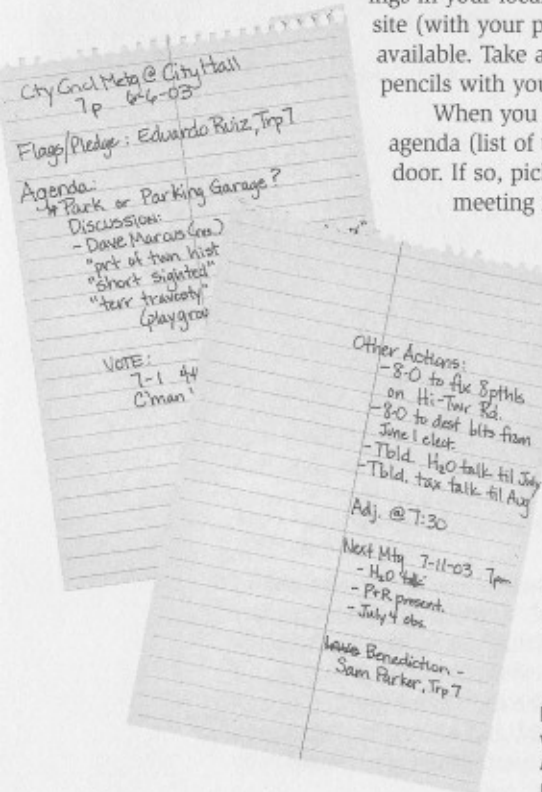 ings in your loca
site (with your p
available. Take a
pencils with you
When you
agenda (list of
door. If so, pic
meeting
Cty Cncl Metg @ City Hall
7p 6-6-03
Flags/Pledge: Eduardo Ruiz, Trp 7
Agenda:
* Park or Parking Garage?
Discussion:
- Dave Marcus (res.)
"prt of twn hist
"short sighted"
"terr travesty"
(playgrou
VOTE:
7-1
C'man
Other Actions:
- 8-0 to fix 8pthls
on Hi-Twr Rd.
- 8-0 to dest blts from
June 1 elect.
- Tbld. H₂O talk til July
- Tbld. tax talk til Aug
Adj. @ 7:30
Next Mtg 7-11-03 7pm
- H₂O talk
- P+R present.
- July 4 obs.
Benediction -
Sam Parker, Trp 7